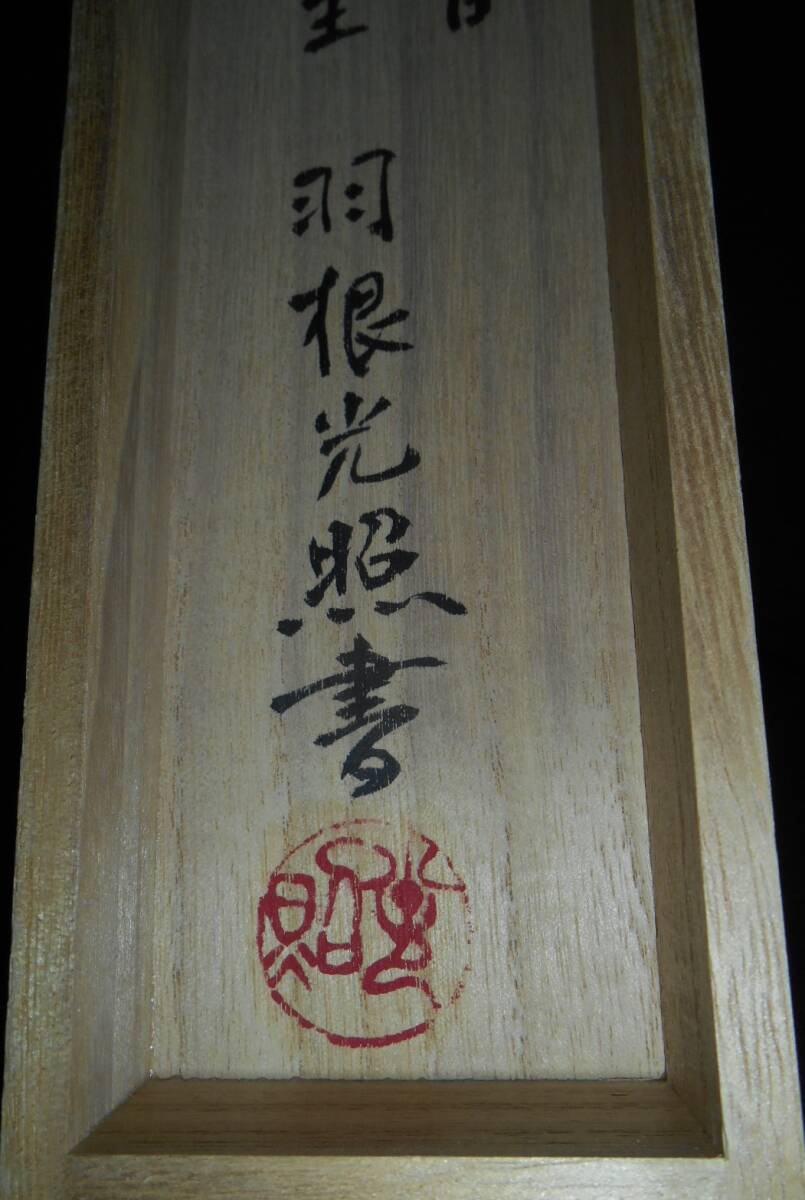 羽根光照書